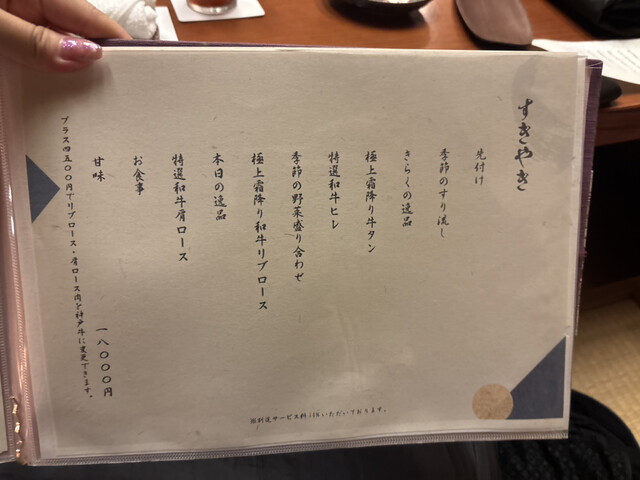 すきやき
先付け
季節のすり流し
きらくの逸品
極上霜降り牛タン
特選和牛ヒレ
季節の野菜盛り合わせ
極上霜降り和牛リブロース
本日の逸品
特選和牛肩ロース
お食事
甘味
一八〇〇〇円
プラス四五〇〇円でリブロース・肩ロース肉を神戸牛に変更できます。
※別途サービス料いただいております。